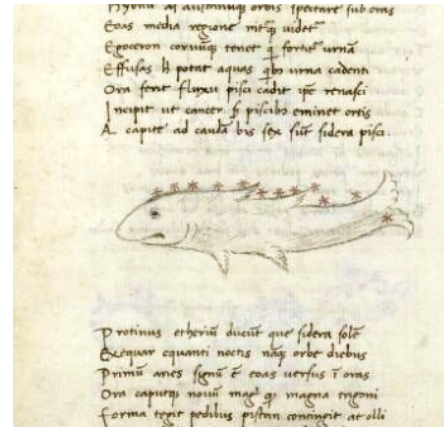 Eoas media regione mūtq videt
Egoceron corvumq tenet q fortit urnā
Effusas h potat aquas qbs urna cadenti
Ora ferit fluxu pisci cadit ipe renasci
Incipit ut cancer h piscibs eminet ortis
A capite ad caudā bis sex sūt sidera pisci
Protinus etheriū ducūt que sidera solē
Exequar equanti noctis nāq orbe diebus
Primū aries signū ē eoas versus ī oras
Ora caputq novū magna trigoni
Forma tegit pedibus pistrin contingit at olli